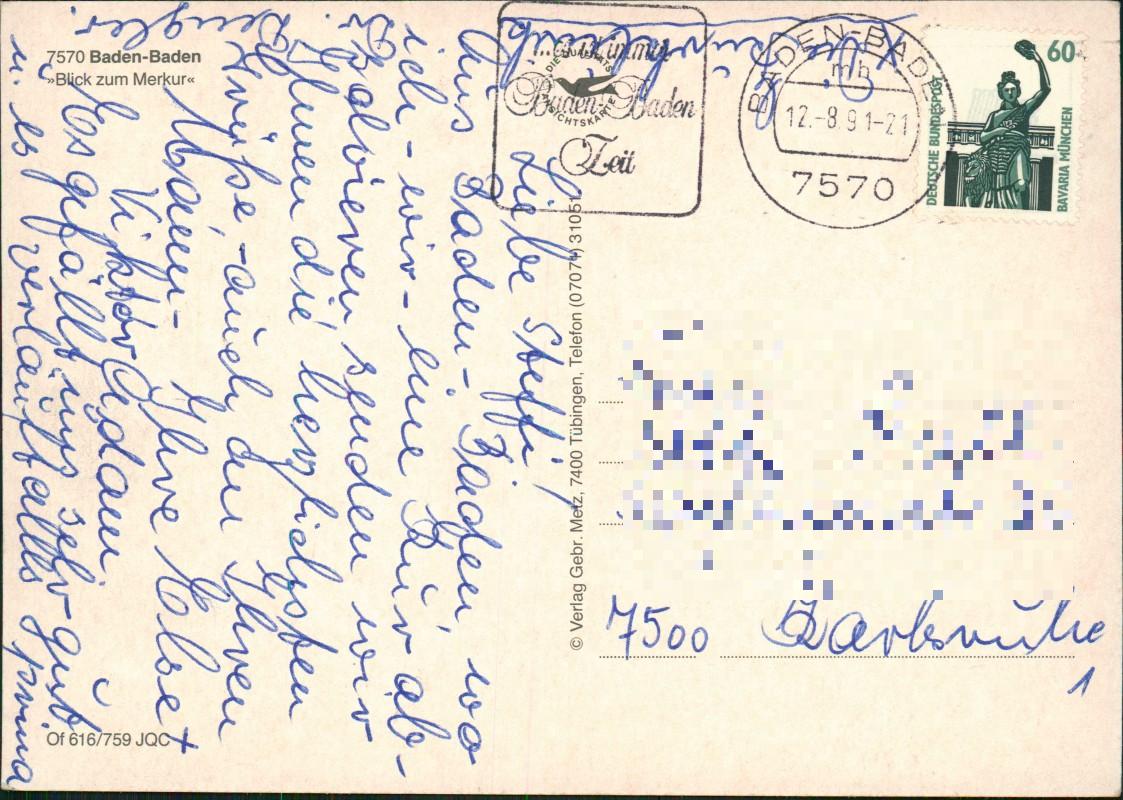 7570 Baden-Baden
»Blick zum Merkur«
Liebe Steffi!
Aus Baden-Baden, wo
ich - wir - eine Kur ab-
solvieren senden wir
Ihnen die herzlichsten
Grüße, - auch an Ihren
Mann - Ihre Else +
Viktor Adam
Es gefällt uns sehr gut
u. es verläuft alles prima
Of 616/759 JQC
© Verlag Gebr. Metz, 7400 Tübingen, Telefon (07071) 31051
DIE QUALITÄTS
ANSICHTSKARTE
immer
Baden-Baden
Zeit
BADEN-BADEN
mh
12.-8.91-21
7570
60
DEUTSCHE BUNDESPOST
BAVARIA MÜNCHEN
7500 Karlsruhe
1